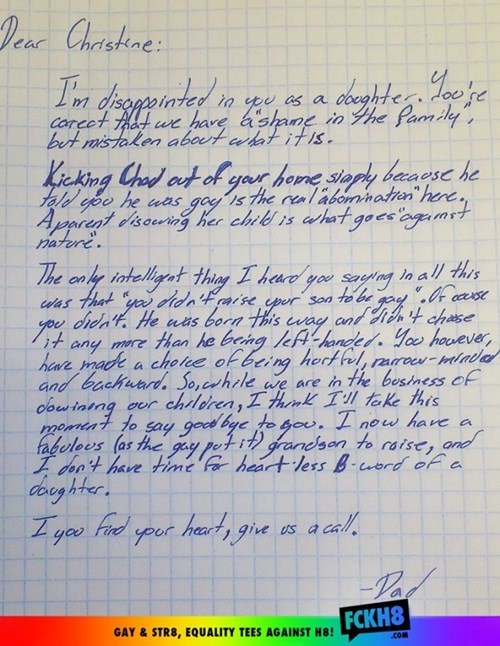 Dear Christine:
I'm disappointed in you as a daughter. You're
correct that we have a "shame in the family",
but mistaken about what it is.
Kicking Chad out of your home simply because he
told you he was gay is the real "abomination" here.
A parent disowning her child is what goes "against
nature".
The only intelligent thing I heard you saying in all this
was that "you didn't raise your son to be gay". Of course
you didn't. He was born this way and didn't choose
it any more than he being left-handed. You however,
have made a choice of being hurtful, narrow-minded
and backward. So, while we are in the business of
disowning our children, I think I'll take this
moment to say goodbye to you. I now have a
fabulous (as the gay put it) grandson to raise, and
I don't have time for heart-less B-word of a
daughter.
I you find your heart, give us a call.
-Dad
GAY & STR8, EQUALITY TEES AGAINST H8! FCKH8
.COM